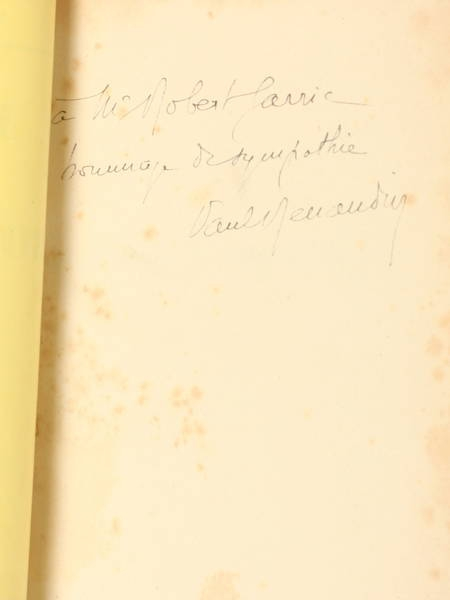 à Mr Robert Garric
hommage de sympathie
Paul Renaudin